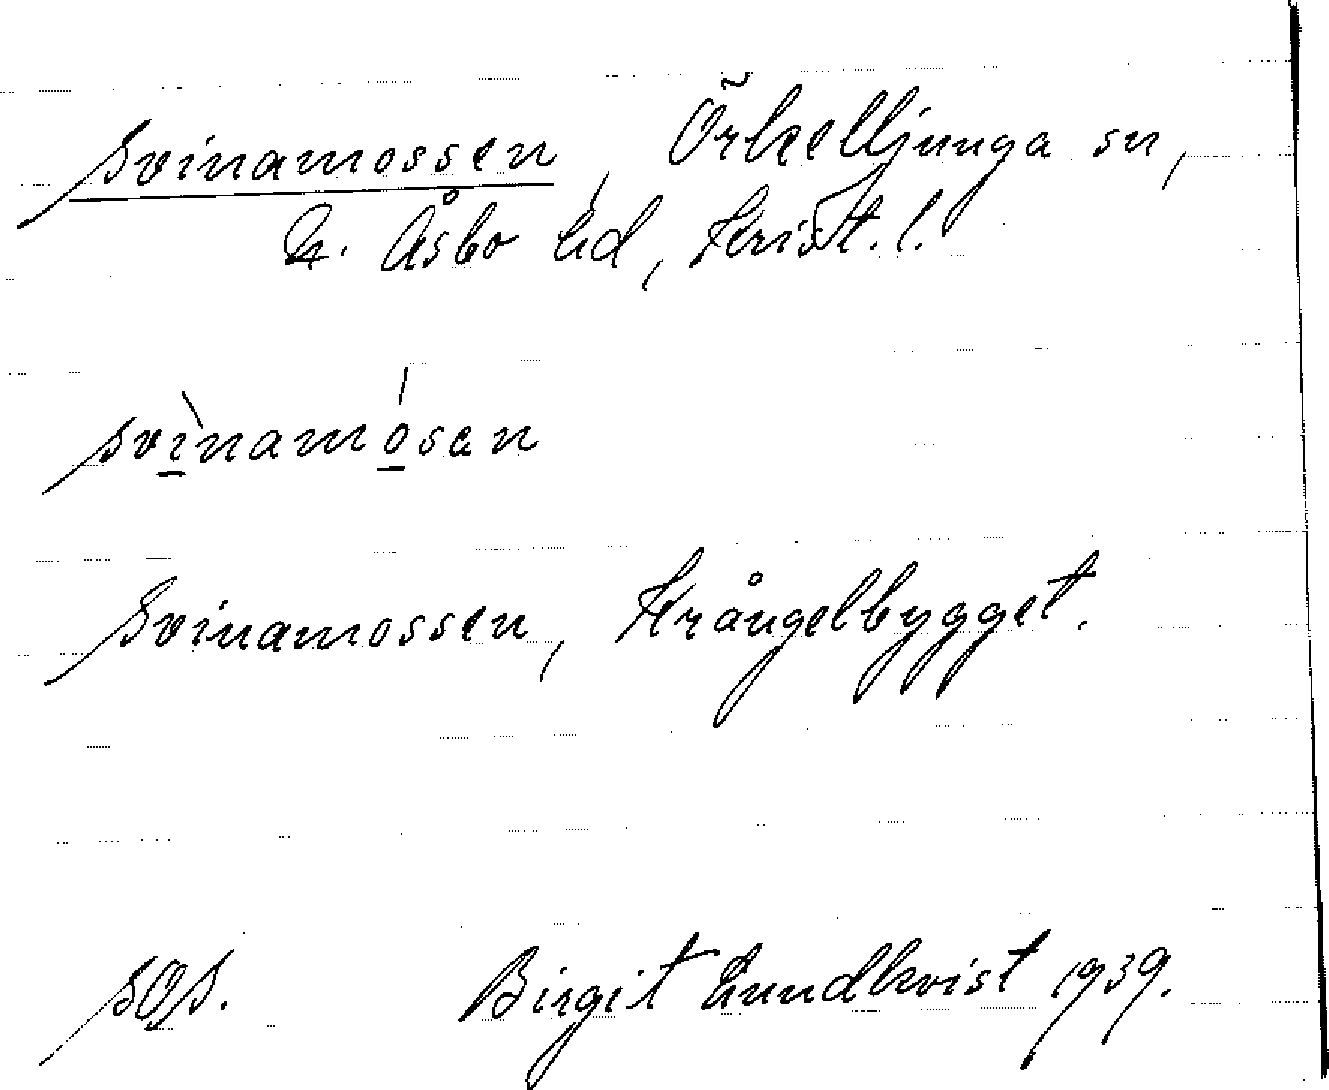 Svinamossen, Örkelljunga sn,
N. Åsbo hd, Krist. l.
svìnamósan
Svinamossen, Krångelbygget.
SOS. Birgit Lundkvist 1939.